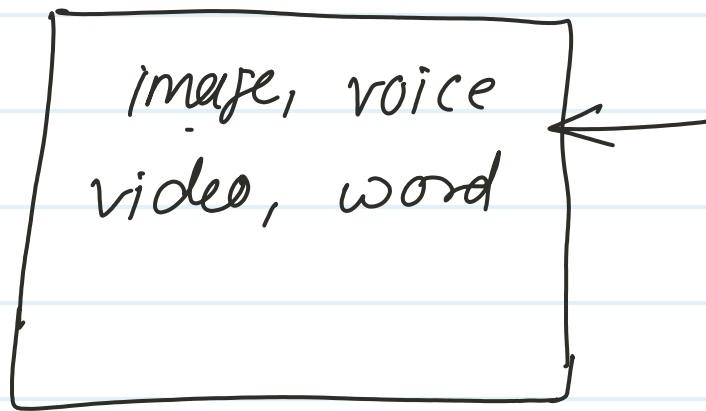 image, voice
video, word